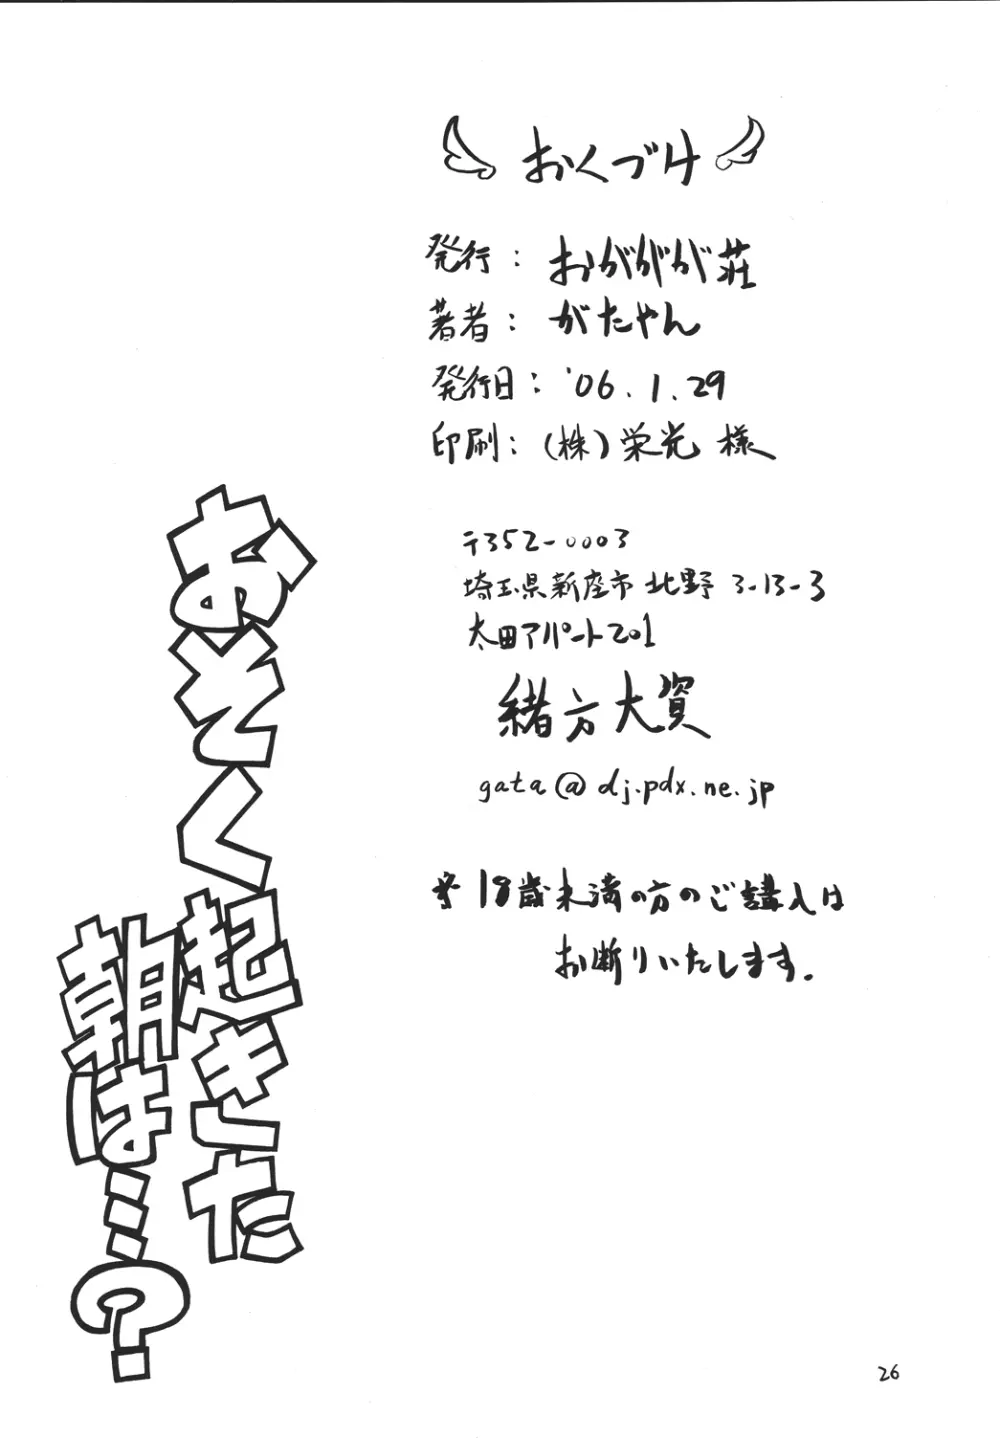 おくづけ
発行：おががが荘
著者：がたやん
発行日：'06.1.29
印刷：（株）栄光 様
〒352-0003
埼玉県新座市北野3-13-3
太田アパート201
緒方大資
gata@dj.pdx.ne.jp
※18歳未満の方のご購入は
お断りいたします.
おそく起きた
朝は…?
26